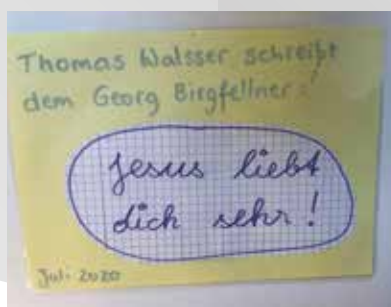 Thomas Walsser schreibt
dem Georg Birgfellner:
Jesus liebt
dich sehr!
Juli 2020